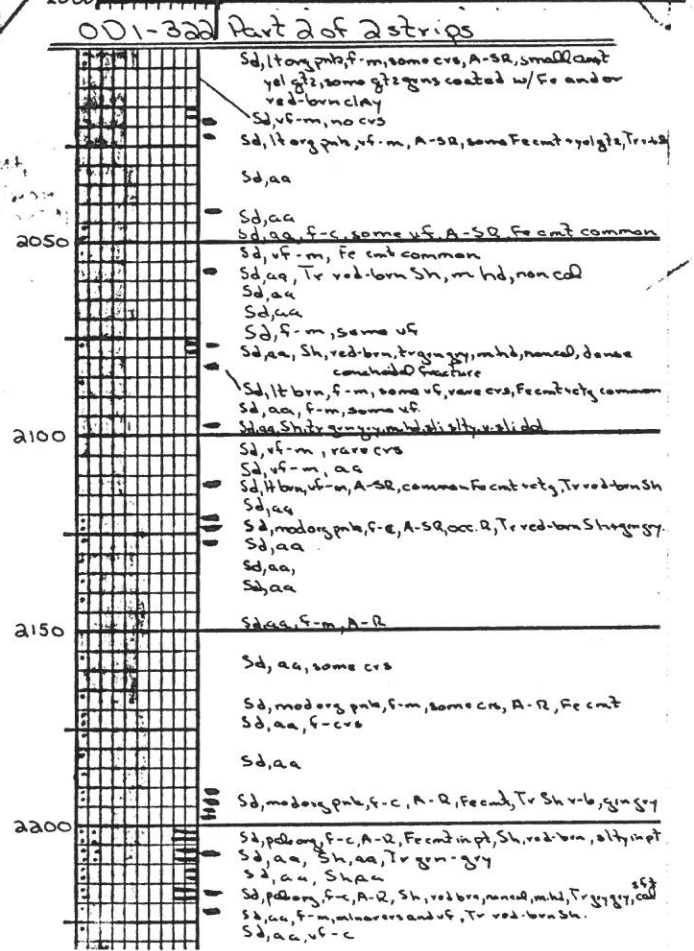 2000
OD1-322 Part 2 of 2 strips
Sd, lt org pnk, f-m, some crs, A-SR, small amt
yel qtz, some qtz grns coated w/ Fe and or
red-brn clay
Sd, vf-m, no crs
Sd, lt org pnk, vf-m, A-SR, some Fe cmt + yel qtz,
Sd, aa
Sd, aa
Sd, aa, f-c, some vf, A-SR, Fe cmt common
2050
Sd, vf-m, Fe cmt common
Sd, aa, Tr red-brn Sh, m hd, non cal
Sd, aa
Sd, aa
Sd, f-m, some vf
Sd, aa, Sh, red-brn, tr grn gry, m hd, noncal, dense
conchoidal fracture
Sd, lt brn, f-m, some vf, rare crs, Fe cmt + ctg common
Sd, aa, f-m, some vf
2100
Sd, aa, Sh, tr grn gry, m hd, sli slty, v. sli dol
Sd, vf-m, rare crs
Sd, vf-m, aa
Sd, lt brn, vf-m, A-SR, common Fe cmt + ctg, Tr red-brn Sh
Sd, aa
Sd, mod org pnk, f-c, A-SR, occ. R, Tr red-brn Sh + grn gry.
Sd, aa
Sd, aa,
Sd, aa
2150
Sd, aa, f-m, A-R
Sd, aa, some crs
Sd, mod org pnk, f-m, some crs, A-R, Fe cmt
Sd, aa, f-crs
Sd, aa
Sd, mod org pnk, f-c, A-R, Fe cmt, Tr Sh r-b, grn gry
2200
Sd, pale org, f-c, A-R, Fe cmt in pt, Sh, red-brn, slty in pt
Sd, aa, Sh, aa, Tr grn-gry
Sd, aa, Sh aa
Sd, pale org, f-c, A-R, Sh, red brn, noncal, m. hd, Tr gry gry, cal
sft
Sd, aa, f-m, minor crs and vf, Tr red-brn Sh.
Sd, aa, vf-c